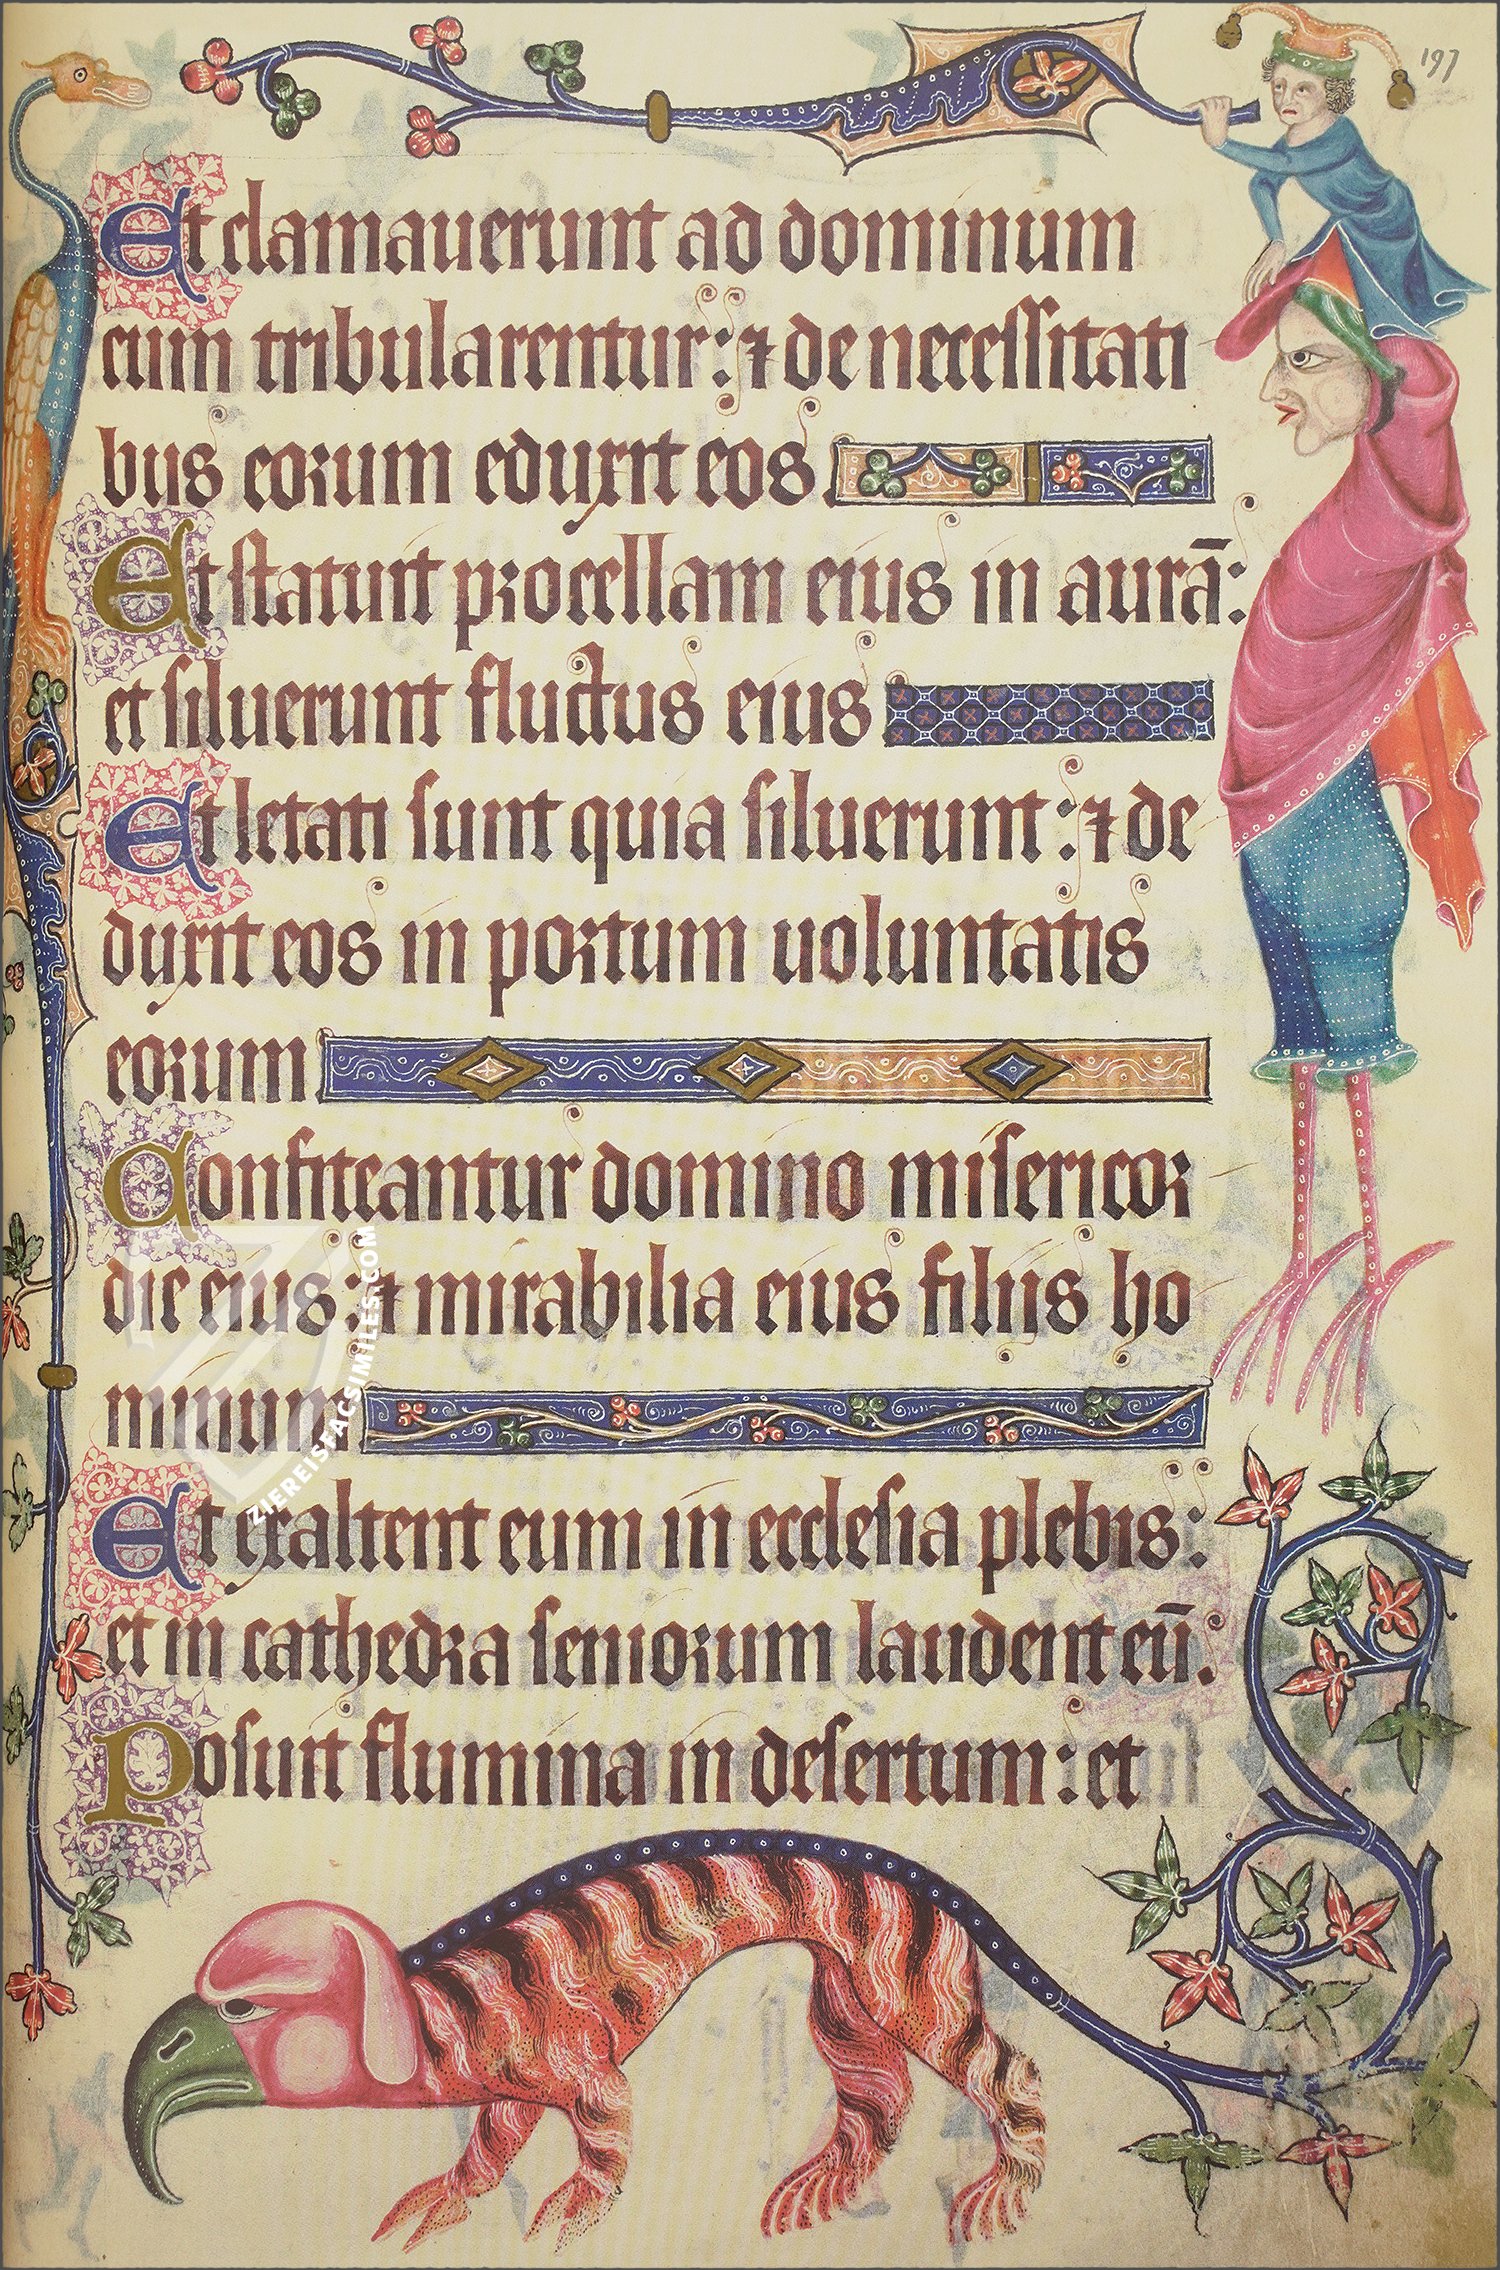 197
Et clamauerunt ad dominum
cum tribularentur: ⁊ de necessitati
bus eorum eduxit eos.
Et statuit procellam eius in aurā:
et siluerunt fluctus eius
Et letati sunt quia siluerunt: ⁊ de
duxit eos in portum uoluntatis
eorum.
Confiteantur domino misericor
die eius: ⁊ mirabilia eius filiis ho
minum.
Et exaltent eum in ecclesia plebis:
et in cathedra seniorum laudent eū.
Posuit flumina in desertum: et
ZIEREISFACSIMILES.COM